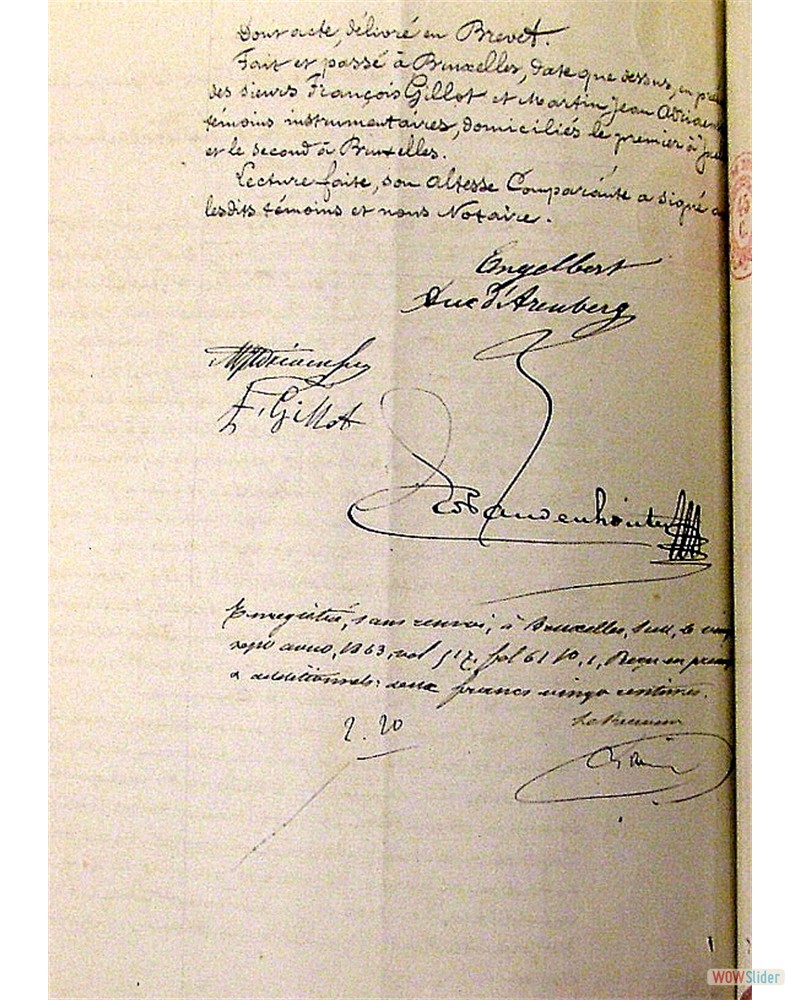 Dont acte, délivré en Brevet.
Fait et passé à Bruxelles, date que dessus, en
des sieurs François Gillot et Martin Jean
témoins instrumentaires, domiciliés le premier à
et le second à Bruxelles.
Lecture faite, son Altesse Comparante a signé
lesdits témoins et nous Notaire.
Engelbert
Duc d'Arenberg
F. Gillot
Enregistré, sans renvoi, à Bruxelles, Sud, le
1863, vol 517, fol 61
additionnels: deux francs vingt centimes.
2.20
15
C.
WOWSlider